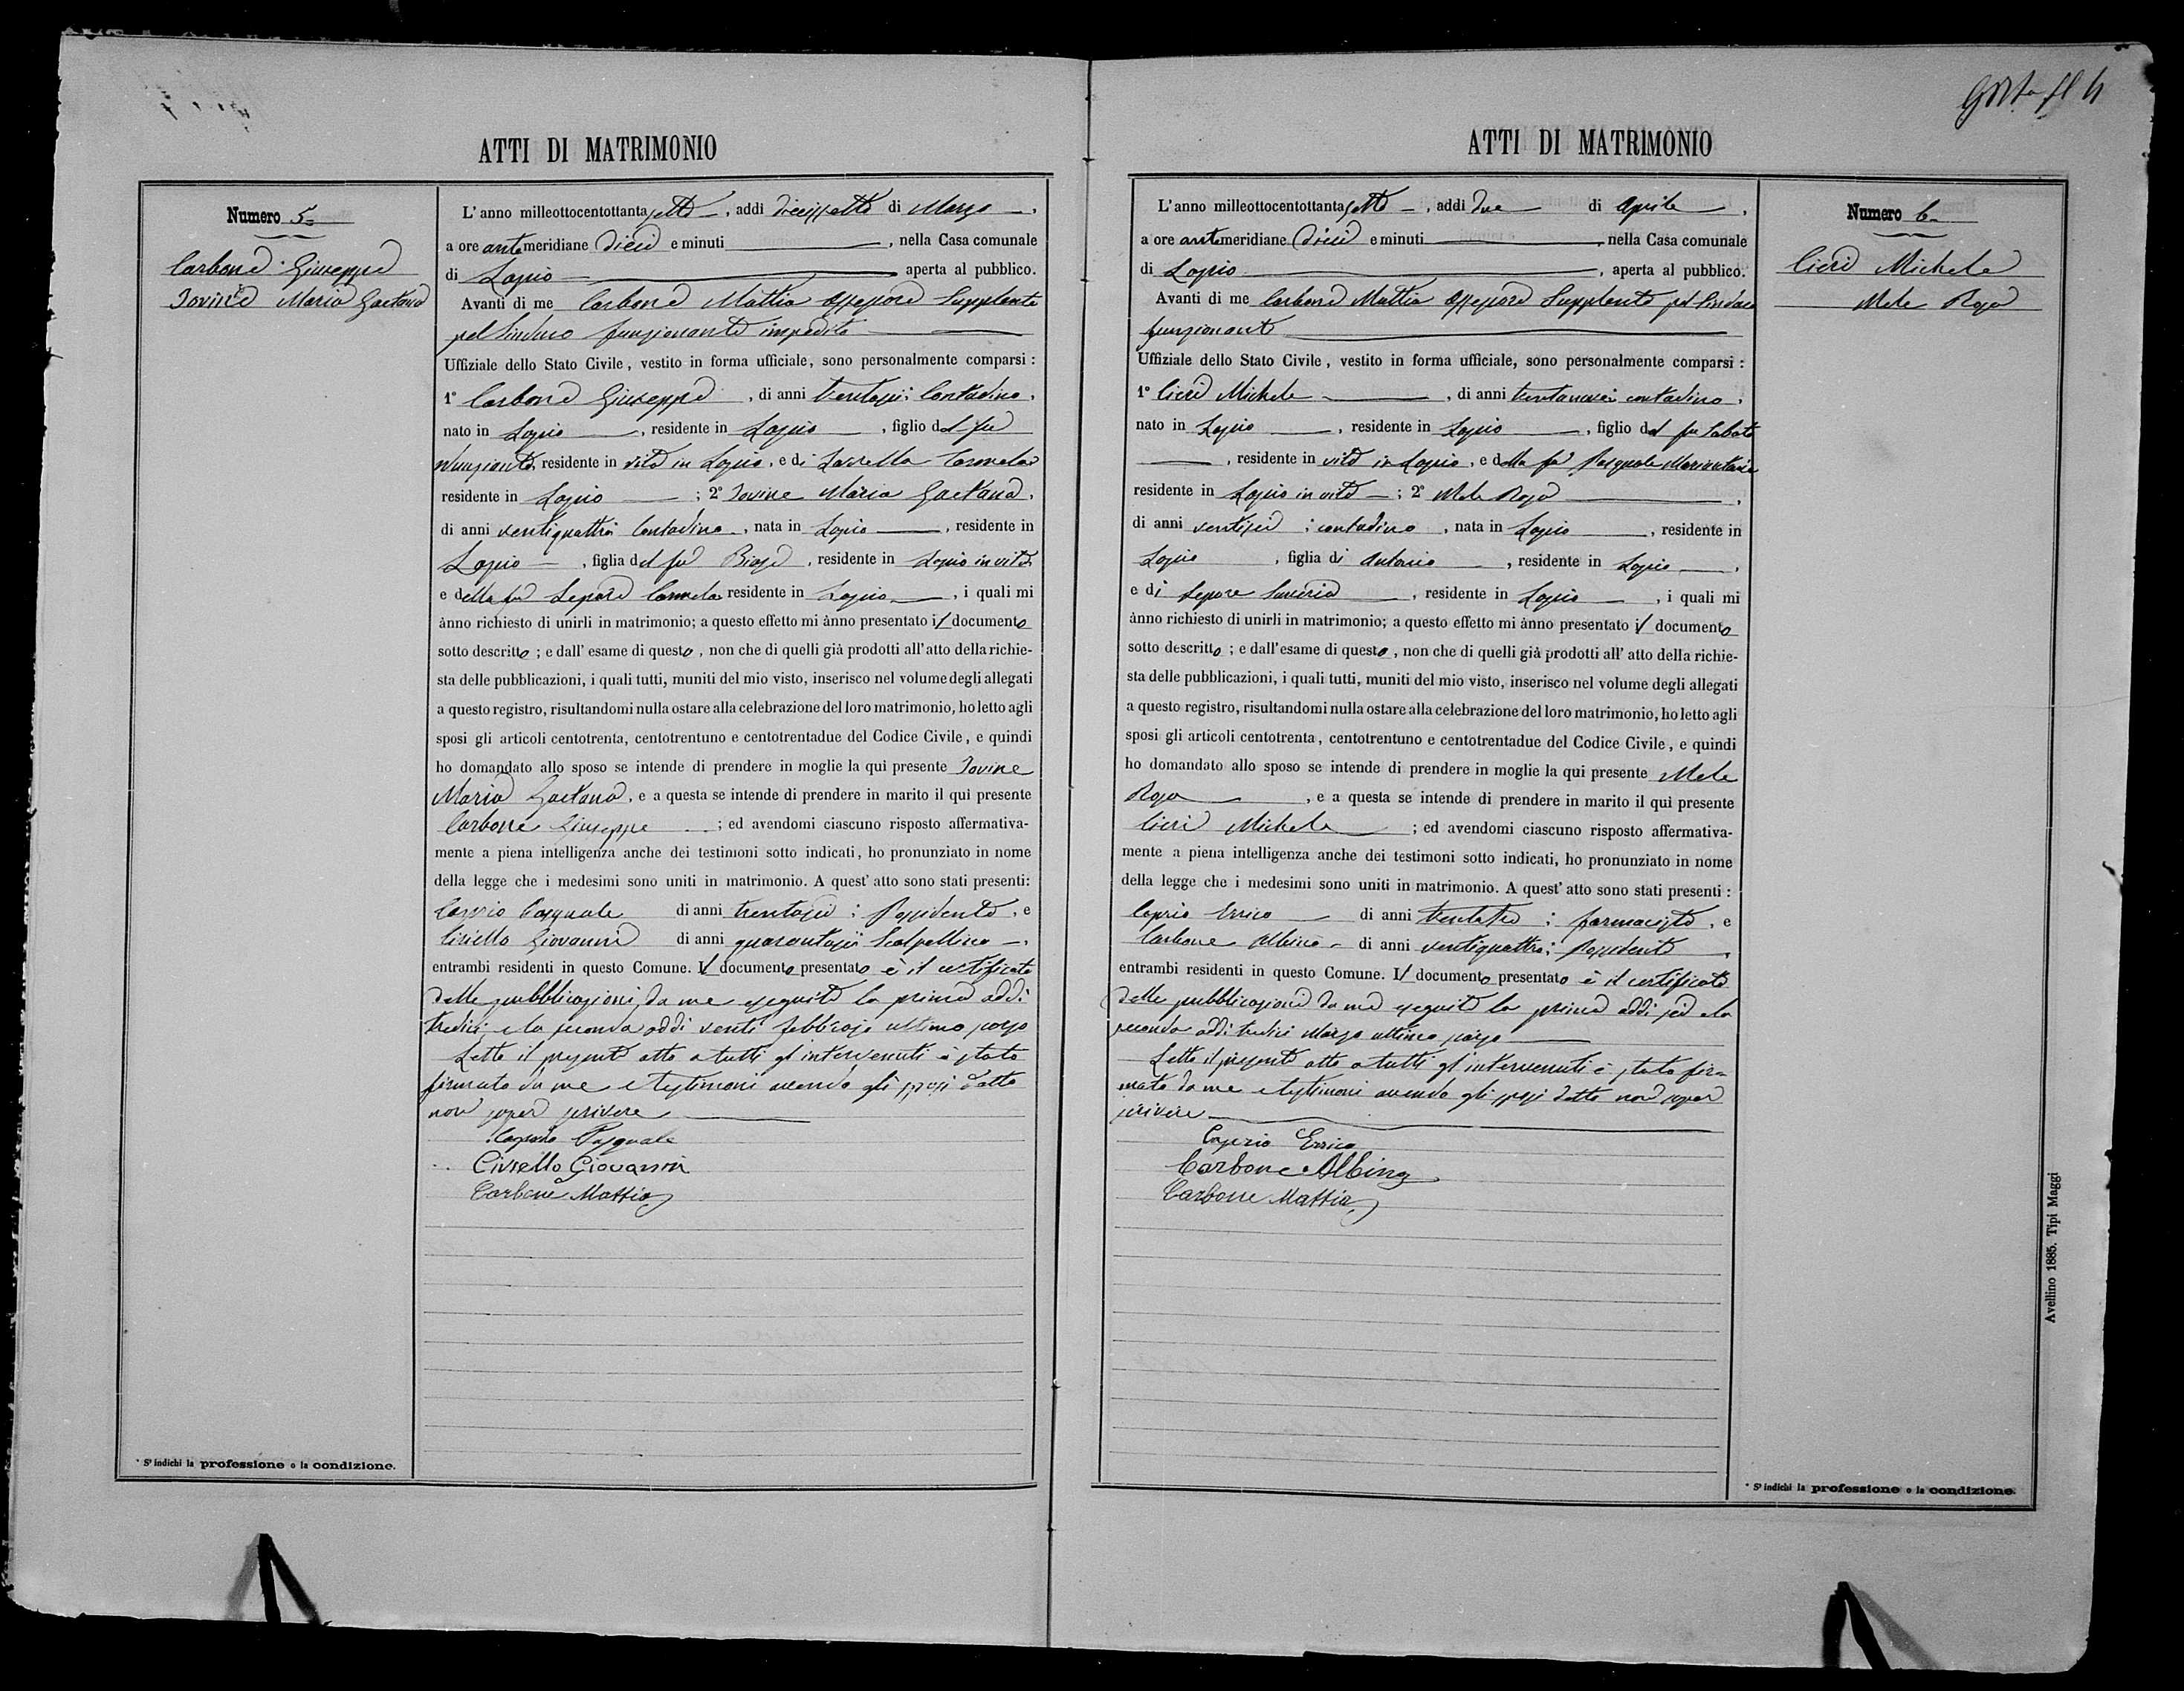 ATTI DI MATRIMONIO
Numero 5
Carbone Giuseppe
Iovine Maria Gaetana
L'anno milleottocentottantasette, addi diecissette di Marzo,
a ore antemeridiane dieci e minuti, nella Casa comunale
di Lapio aperta al pubblico.
Avanti di me Carbone Mattia Assessore Supplente
pel Sindaco funzionante impedito
Uffiziale dello Stato Civile, vestito in forma ufficiale, sono personalmente comparsi:
1° Carbone Giuseppe, di anni trentasei; Contadino,
nato in Lapio, residente in Lapio, figlio del fu
Nunziante, residente in vita in Lapio, e di Carmela
residente in Lapio; 2° Iovine Maria Gaetana,
di anni ventiquattro Contadina, nata in Lapio, residente in
Lapio, figlia del fu Biase, residente in Lapio in vita
e della fu Lepore Carmela residente in Lapio, i quali mi
ànno richiesto di unirli in matrimonio; a questo effetto mi ànno presentato il documento
sotto descritto; e dall'esame di questo, non che di quelli già prodotti all'atto della richie-
sta delle pubblicazioni, i quali tutti, muniti del mio visto, inserisco nel volume degli allegati
a questo registro, risultandomi nulla ostare alla celebrazione del loro matrimonio, ho letto agli
sposi gli articoli centotrenta, centotrentuno e centotrentadue del Codice Civile, e quindi
ho domandato allo sposo se intende di prendere in moglie la quì presente Iovine
Maria Gaetana, e a questa se intende di prendere in marito il quì presente
Carbone Giuseppe; ed avendomi ciascuno risposto affermativa-
mente a piena intelligenza anche dei testimoni sotto indicati, ho pronunziato in nome
della legge che i medesimi sono uniti in matrimonio. A quest'atto sono stati presenti:
Caprio Pasquale di anni trentasei; Possidente, e
Ciriello Giovanni di anni quarantasei Scalpellino,
entrambi residenti in questo Comune. Il documento presentato è il certificato
delle pubblicazioni da me eseguite la prima addi
tredici e la seconda addi venti febbraio ultimo passo
Letto il presente atto a tutti gl'intervenuti è stato
firmato da me e testimoni avendo gli sposi detto
non saper scrivere
Caprio Pasquale
Ciriello Giovanni
Carbone Mattia
* Si indichi la professione o la condizione.
ATTI DI MATRIMONIO
Numero 6
Cieri Michele
Mele Rosa
L'anno milleottocentottantasette, addi due di Aprile,
a ore antemeridiane dieci e minuti, nella Casa comunale
di Lapio, aperta al pubblico.
Avanti di me Carbone Mattia Assessore Supplente pel Sindaco
funzionante
Uffiziale dello Stato Civile, vestito in forma ufficiale, sono personalmente comparsi:
1° Cieri Michele, di anni trentanove contadino,
nato in Lapio, residente in Lapio, figlio del fu Sabato
, residente in vita in Lapio, e della fu Pasquale Mariantonia
residente in Lapio in vita; 2° Mele Rosa,
di anni ventisei; contadina, nata in Lapio, residente in
Lapio, figlia di Antonio, residente in Lapio,
e di Lepore Saveria, residente in Lapio, i quali mi
ànno richiesto di unirli in matrimonio; a questo effetto mi ànno presentato il documento
sotto descritto; e dall'esame di questo, non che di quelli già prodotti all'atto della richie-
sta delle pubblicazioni, i quali tutti, muniti del mio visto, inserisco nel volume degli allegati
a questo registro, risultandomi nulla ostare alla celebrazione del loro matrimonio, ho letto agli
sposi gli articoli centotrenta, centotrentuno e centotrentadue del Codice Civile, e quindi
ho domandato allo sposo se intende di prendere in moglie la qui presente Mele
Rosa, e a questa se intende di prendere in marito il quì presente
Cieri Michele; ed avendomi ciascuno risposto affermativa-
mente a piena intelligenza anche dei testimoni sotto indicati, ho pronunziato in nome
della legge che i medesimi sono uniti in matrimonio. A quest'atto sono stati presenti:
Caprio Errico di anni trentatre; farmacista, e
Carbone Albino di anni ventiquattro; Possidente,
entrambi residenti in questo Comune. Il documento presentato è il certificato
delle pubblicazioni da me eseguite la prima addi sei e la
seconda addi tredici Marzo ultimo passo
Letto il presente atto a tutti gl'intervenuti è stato fir-
mato da me e testimoni avendo gli sposi detto non saper
scrivere
Caprio Errico
Carbone Albino
Carbone Mattia
* Si indichi la professione o la condizione.
Avellino 1885. Tipi Maggi